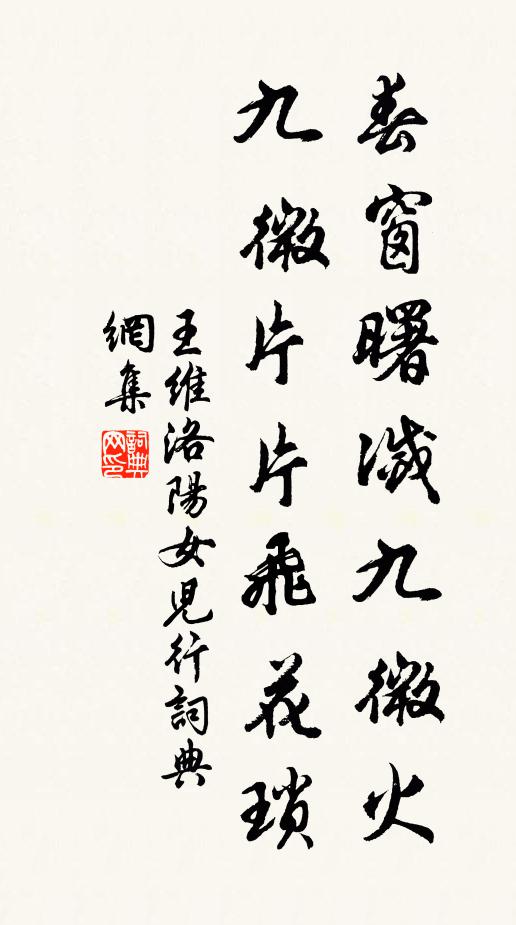 春窗曙滅九微火
九微片片飛花瑣
王維洛陽女兒行詞典
網集
詞典
网印